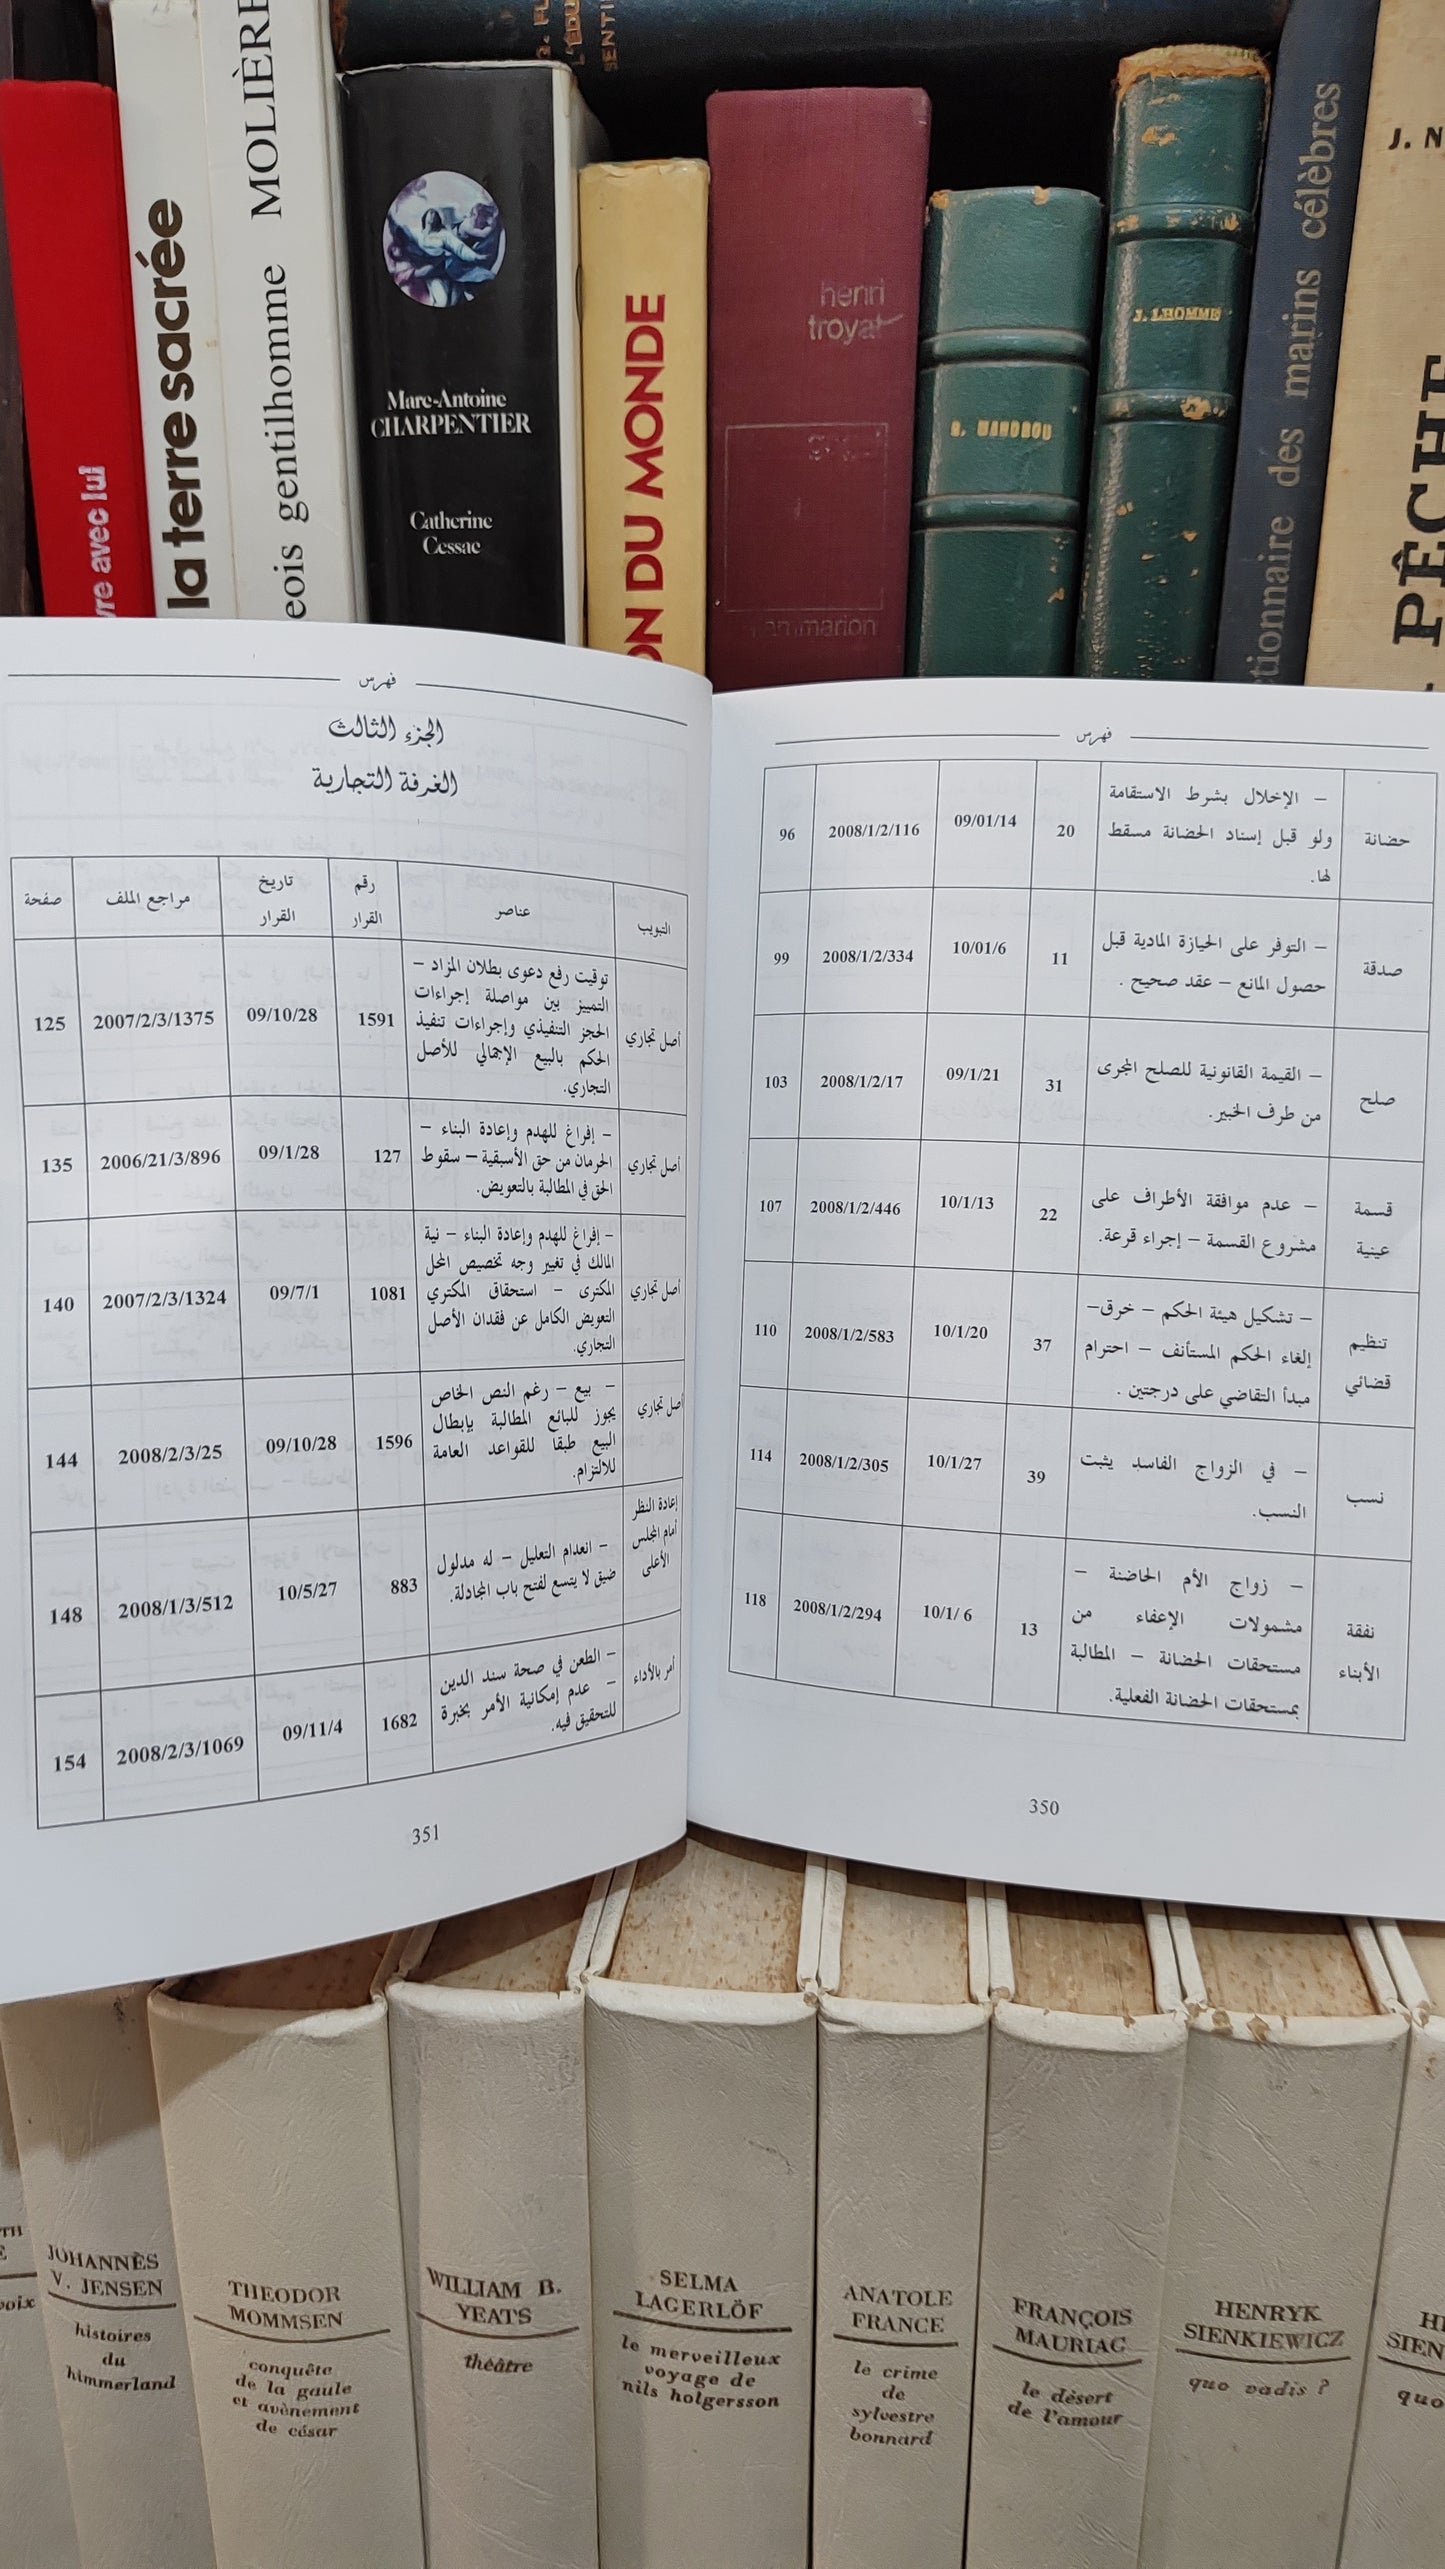 G. FL
L'ÉDU
SENTI
vre avec lui
la terre sacrée
eois gentilhomme MOLIÈRE
Marc-Antoine
CHARPENTIER
Catherine
Cessac
ON DU MONDE
henri
troyat
flammarion
J. LHOMME
tionnaire des marins célèbres
J. N
PÊCHE
فهرس
حضانة
– الإخلال بشرط الاستقامة
ولو قبل إسناد الحضانة مسقط
لها.
20
09/01/14
2008/1/2/116
96
صدقة
– التوفر على الحيازة المادية قبل
حصول المانع – عقد صحيح .
11
10/01/6
2008/1/2/334
99
صلح
– القيمة القانونية للصلح المجرى
من طرف الخبير.
31
09/1/21
2008/1/2/17
103
قسمة
عينية
– عدم موافقة الأطراف على
مشروع القسمة – إجراء قرعة.
22
10/1/13
2008/1/2/446
107
تنظيم
قضائي
– تشكيل هيئة الحكم – خرق–
إلغاء الحكم المستأنف – احترام
مبدأ التقاضي على درجتين .
37
10/1/20
2008/1/2/583
110
نسب
– في الزواج الفاسد يثبت
النسب.
39
10/1/27
2008/1/2/305
114
نفقة
الأبناء
– زواج الأم الحاضنة –
مشمولات الإعفاء من
مستحقات الحضانة – المطالبة
بمستحقات الحضانة الفعلية.
13
10/1/ 6
2008/1/2/294
118
350
فهرس
الجزء الثالث
الغرفة التجارية
التبويب
عناصر
رقم
القرار
تاريخ
القرار
مراجع الملف
صفحة
أصل تجاري
توقيت رفع دعوى بطلان المزاد –
التمييز بين مواصلة إجراءات
الحجز التنفيذي وإجراءات تنفيذ
الحكم بالبيع الإجمالي للأصل
التجاري.
1591
09/10/28
2007/2/3/1375
125
أصل تجاري
– إفراغ للهدم وإعادة البناء –
الحرمان من حق الأسبقية – سقوط
الحق في المطالبة بالتعويض.
127
09/1/28
2006/21/3/896
135
أصل تجاري
– إفراغ للهدم وإعادة البناء – نية
المالك في تغيير وجه تخصيص المحل
المكترى – استحقاق المكتري
التعويض الكامل عن فقدان الأصل
التجاري.
1081
09/7/1
2007/2/3/1324
140
أصل تجاري
– بيع – رغم النص الخاص
يجوز للبائع المطالبة بإبطال
البيع طبقا للقواعد العامة
للالتزام.
1596
09/10/28
2008/2/3/25
144
إعادة النظر
أمام المجلس
الأعلى
– انعدام التعليل – له مدلول
ضيق لا يتسع لفتح باب المجادلة.
883
10/5/27
2008/1/3/512
148
أمر بالأداء
– الطعن في صحة سند الدين
– عدم إمكانية الأمر بخبرة
للتحقيق فيه.
1682
09/11/4
2008/2/3/1069
154
351
JOHANNÈS
V. JENSEN
histoires
du
himmerland
THEODOR
MOMMSEN
conquête
de la gaule
et avènement
de césar
WILLIAM B.
YEATS
théâtre
SELMA
LAGERLÖF
le merveilleux
voyage de
nils holgersson
ANATOLE
FRANCE
le crime
de
sylvestre
bonnard
FRANÇOIS
MAURIAC
le désert
de l'amour
HENRYK
SIENKIEWICZ
quo vadis ?
HE
SIEN
quo